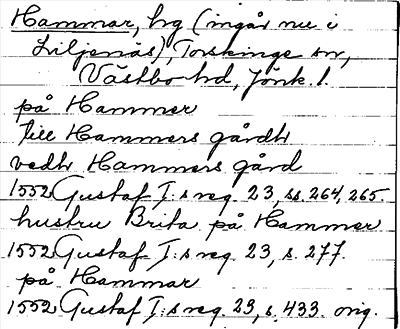 Hammar, hg (ingår nu i
Liljenäs), Torskinge sn,
Västbo hd, Jönk. l.
på Hammer
till Hammers gårdh
vedh Hammers gård
1552 Gustaf I:s reg. 23, ss. 264, 265.
hustru Brita på Hammer
1552 Gustaf I:s reg. 23, s. 277.
på Hammar
1552 Gustaf I:s reg. 23, s. 433. orig.